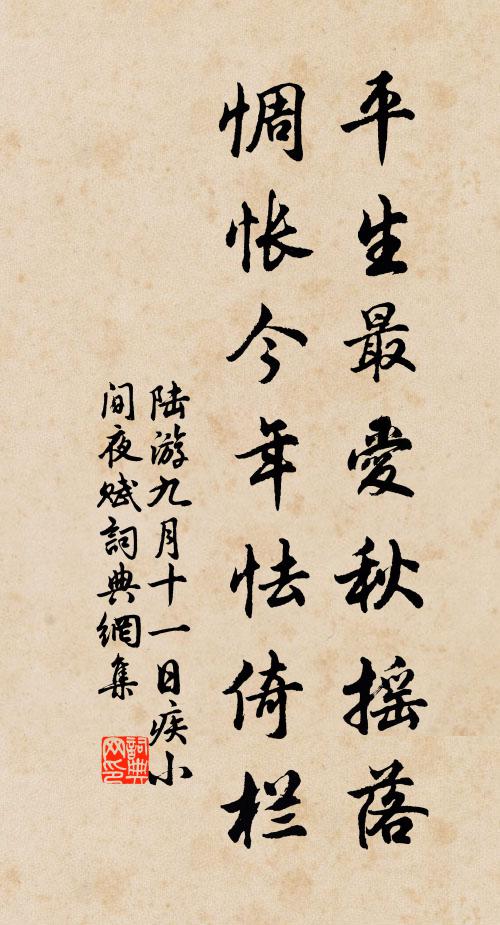 平生最愛秋摇落
惆怅今年怯倚栏
陆游九月十一日疾小
间夜赋詞典網集
詞典网印